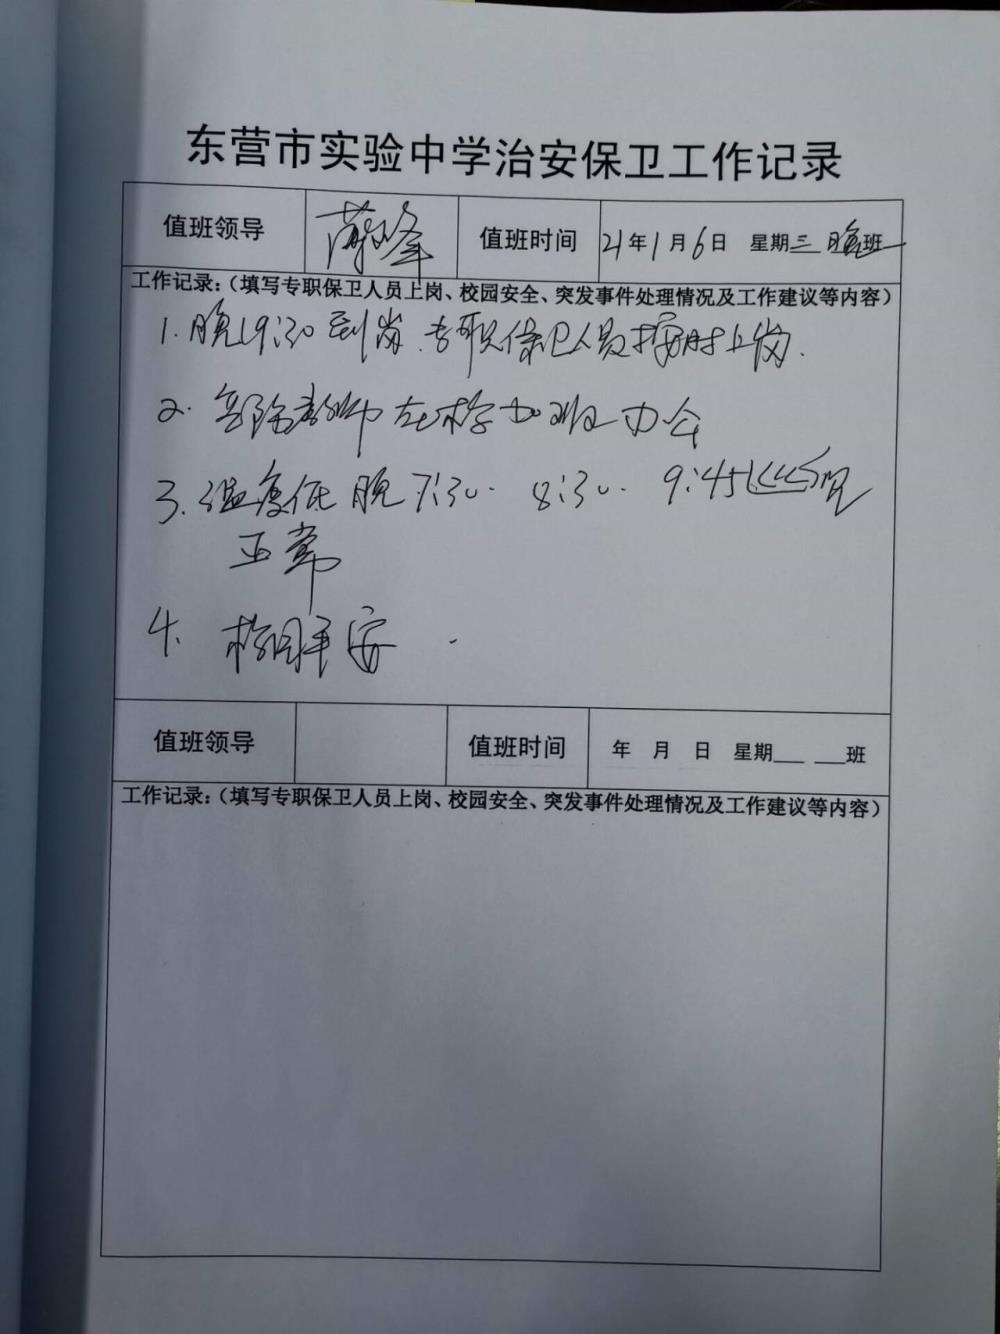 东营市实验中学治安保卫工作记录
值班领导 薄峰 值班时间 21年1月6日 星期三 晚班
工作记录：（填写专职保卫人员上岗、校园安全、突发事件处理情况及工作建议等内容）
1. 晚19:30到岗.专职保卫人员按时上岗.
2. 部分教师在校加班办公
3. 温度低 晚7:30. 8:30. 9:45
正常
4. 校园平安.
值班领导 值班时间 年 月 日 星期___ ___班
工作记录：（填写专职保卫人员上岗、校园安全、突发事件处理情况及工作建议等内容）